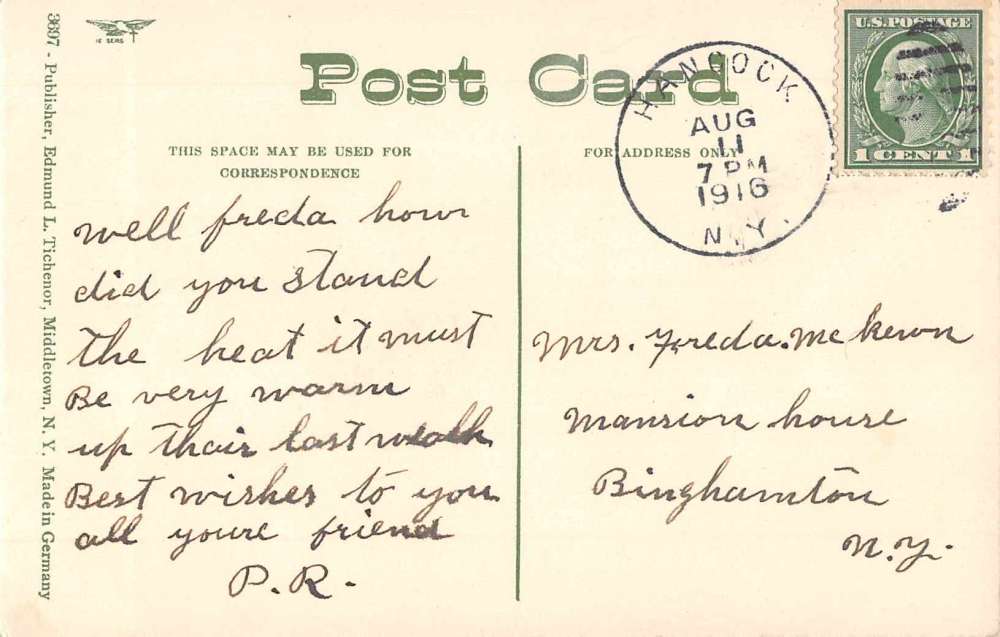 3697 - Publisher, Edmund L. Tichenor, Middletown, N. Y. Made in Germany
Post Card
THIS SPACE MAY BE USED FOR
CORRESPONDENCE
FOR ADDRESS ONLY
HANCOCK
AUG
11
7 PM
1916
N.Y.
U.S. POSTAGE
1 CENT 1
well freda how
did you stand
the heat it must
Be very warm
up thair last
Best wishes to you
all youre friend
P.R.
Mrs. Freda. Mc kewn
mansion house
Binghamton
N.Y.